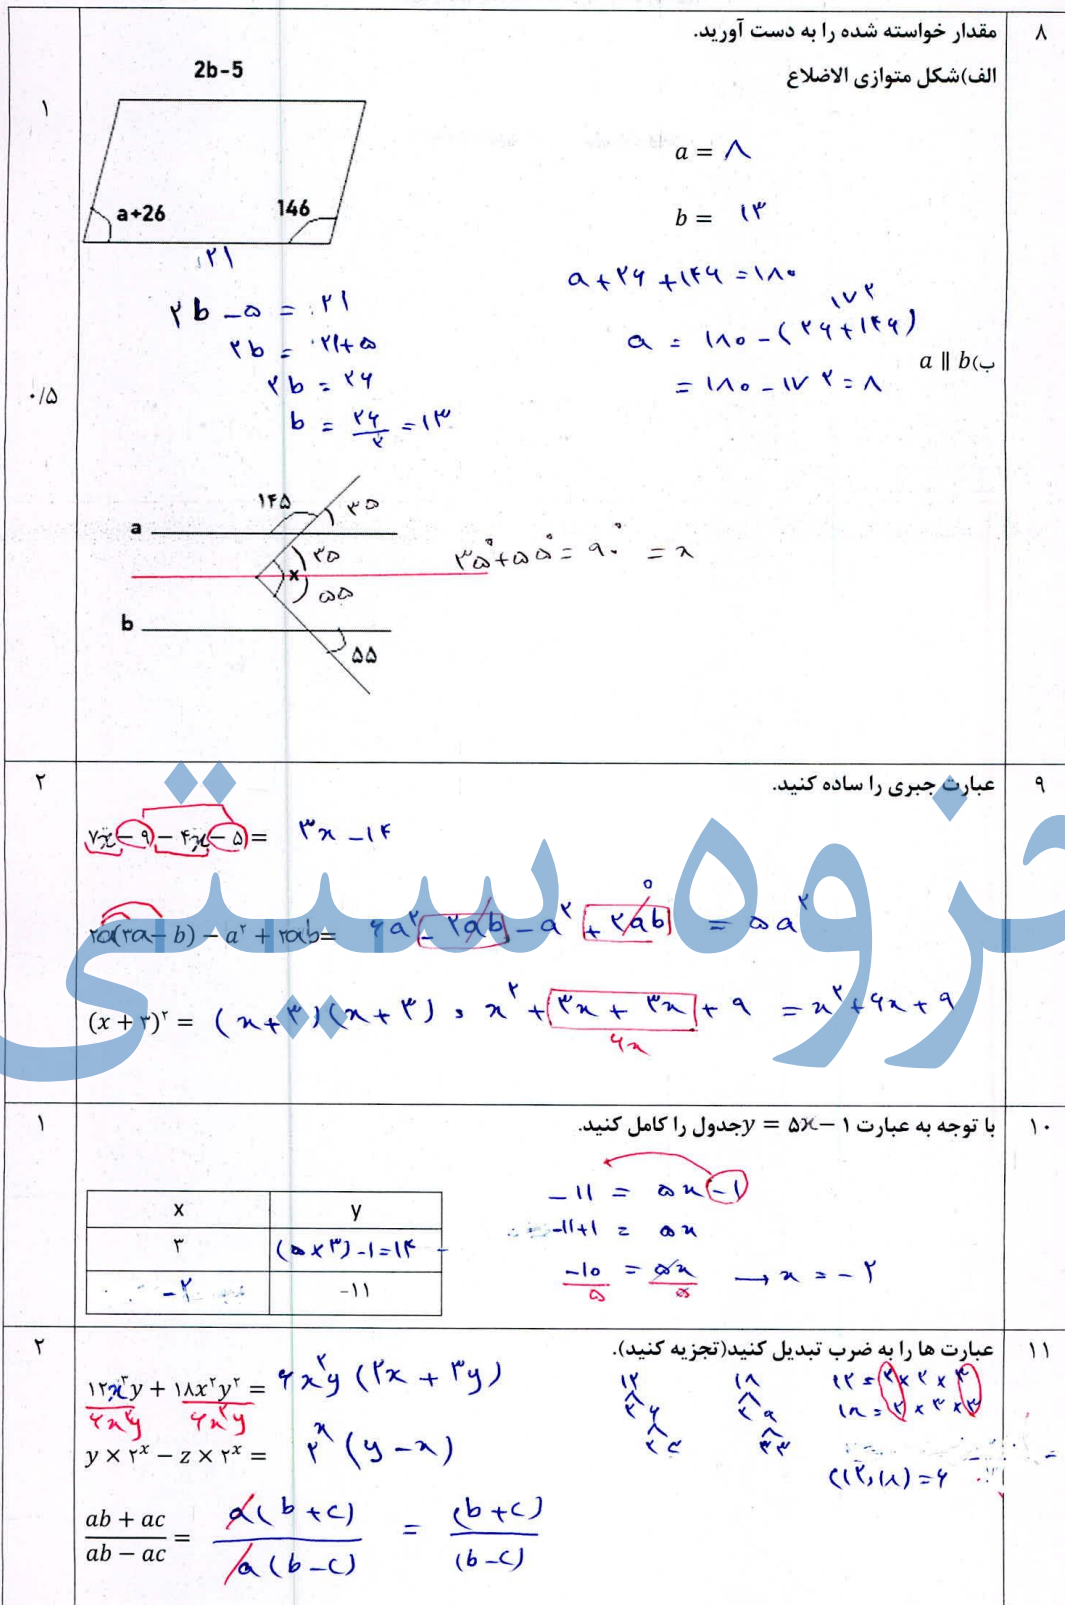 ۸
مقدار خواسته شده را به دست آورید.
الف)شکل متوازی الاضلاع
۱
2b-5
a+26
146
۲۱
a = ۸
b = ۱۳
a + ۲۶ + ۱۴۶ = ۱۸۰
۱۷۲
a = ۱۸۰ - (۲۶+۱۴۶)
= ۱۸۰ - ۱۷۲ = ۸
۲b - ۵ = ۲۱
۲b = ۲۱+۵
۲b = ۲۶
b = ۲۶/۲ = ۱۳
ب)a ∥ b
۰/۵
۱۴۵
۳۵
a
۳۵
x
۵۵
b
۵۵
۳۵° + ۵۵° = ۹۰° = x
۹
عبارت جبری را ساده کنید.
۲
۷x - ۹ - ۴x - ۵ = ۳x - ۱۴
۲a(۳a - b) - a۲ + ۲ab = ۶a۲ - ۲ab - a۲ + ۲ab = ۵a۲
۰
(x + ۳)۲ = (x+۳)(x+۳) = x۲ + ۳x + ۳x + ۹ = x۲ + ۶x + ۹
۶x
جزوه سیتی
۱۰
با توجه به عبارت y = ۵x - ۱ جدول را کامل کنید.
۱
x y
۳ (۵×۳)-۱=۱۴
-۲ -۱۱
-۱۱ = ۵x - ۱
-۱۱+۱ = ۵x
-۱۰/۵ = ۵x/۵ → x = -۲
۱۱
عبارت ها را به ضرب تبدیل کنید(تجزیه کنید).
۲
۱۲x۳y + ۱۸x۲y۲ = ۶x۲y (۲x + ۳y)
۶x۲y ۶x۲y
y × ۲x - z × ۲x = ۲x (y - x)
ab + ac / ab - ac = a(b+c) / a(b-c) = (b+c) / (b-c)
۱۲ ۱۸
۲ ۶ ۲ ۹
۳ ۳
۱۲ = ۲ × ۲ × ۳
۱۸ = ۲ × ۳ × ۳
(۱۲,۱۸) = ۶